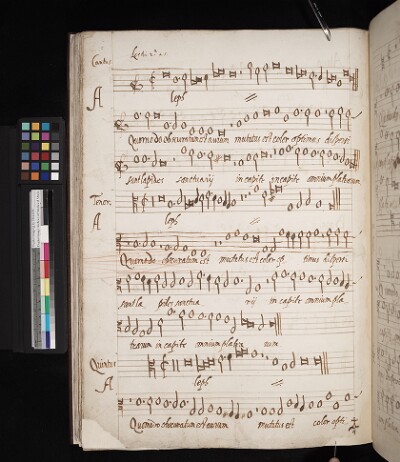 Cantus
Lectio 2a
A leph
Quomodo obscuratum est aurum mutatus est color optimus dispersi
sunt lapides sanctuarij in capite in capite omnium platearum
Tenor
A leph
Quomodo obscuratum est mutatus est color op timus dispersi
sunt la pides sanctua rij in capite omnium pla
tearum in capite omnium platea rum
Quintus
A leph
Quomodo obscuratum est aurum mutatus est color opti